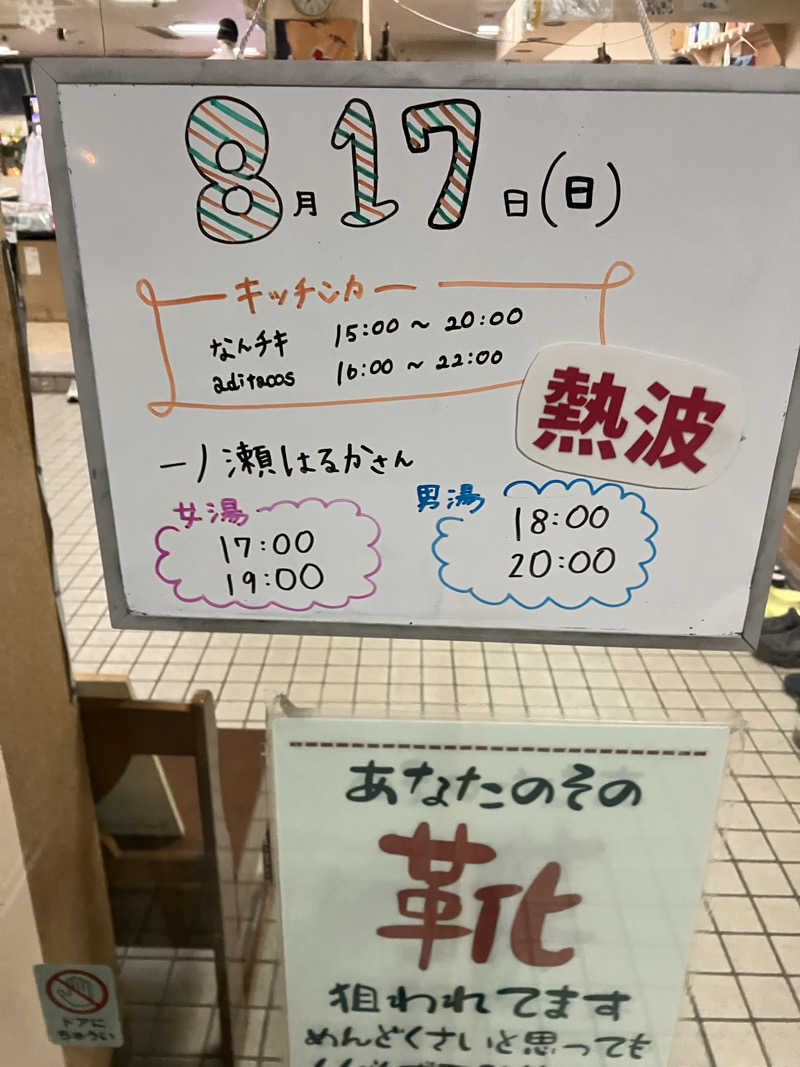 8月17日(日)
キッチンカー
なんチキ 15:00 ~ 20:00
aditacos 16:00 ~ 22:00
熱波
一ノ瀬はるかさん
女湯
17:00
19:00
男湯
18:00
20:00
あなたのその
靴
狙われてます
めんどくさいと思っても
ドアに
ちゅうい